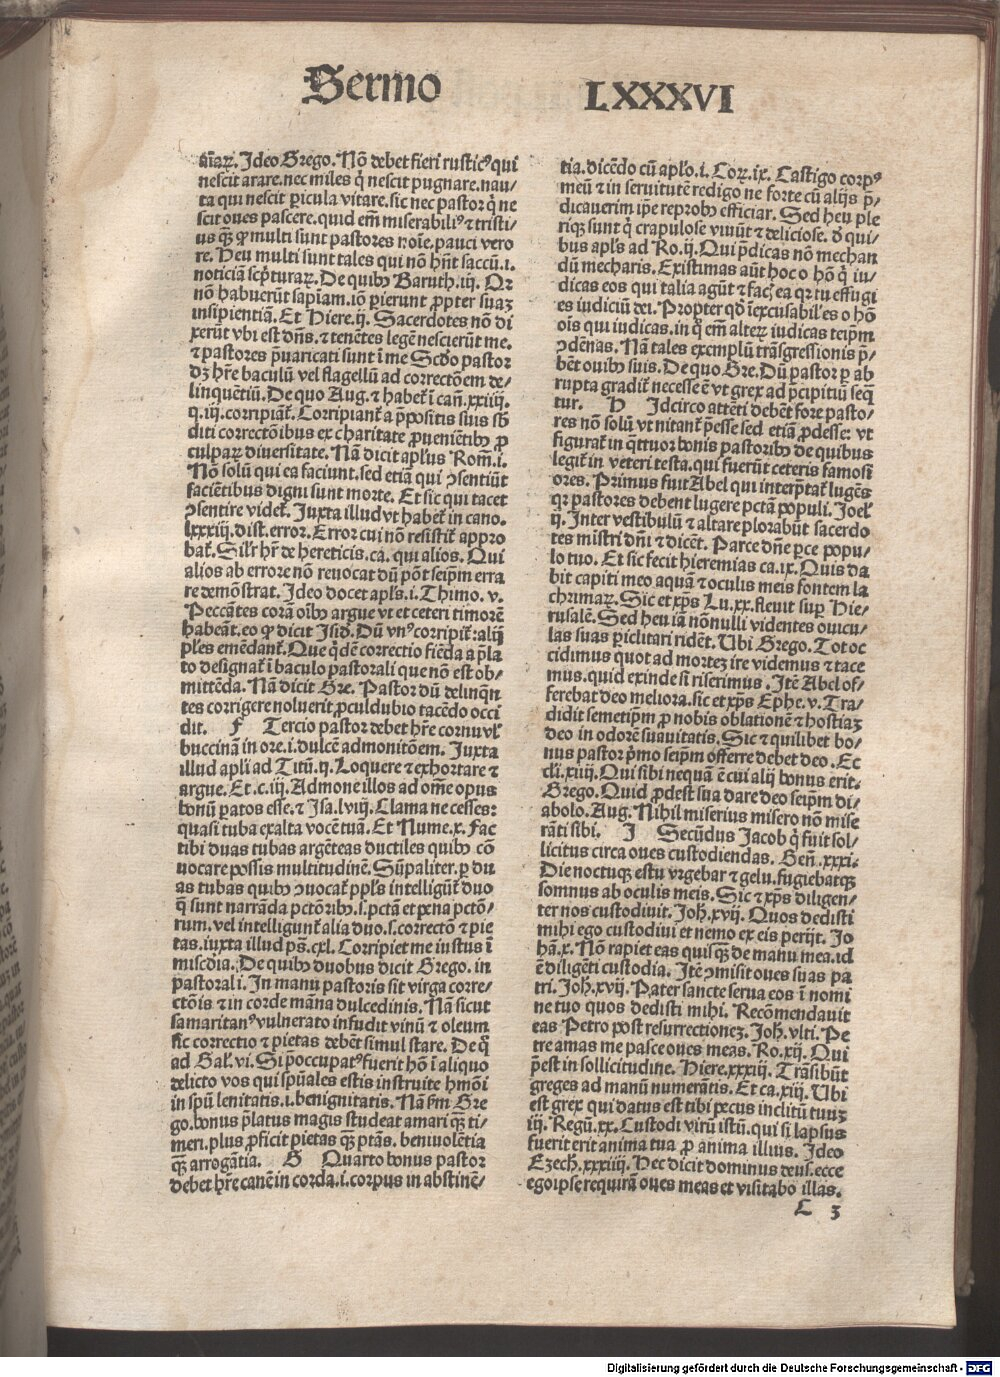 Sermo LXXXVI
aīaꝝ. Ideo Grego. Nō debet fieri rusticꝰ qui
nescit arare. nec miles q̇ nescit pugnare. nau/
ta qui nescit pericula vitare. sic nec pastor q̇ ne
scit oues pascere. quid em̄ miserabiliꝰ ⁊ tristi/
us qȝ ꝙ multi sunt pastores noīe. pauci vero
re. Heu multi sunt tales qui nō hn̄t saccū .i.
noticiā scpturaꝝ. De quibꝰ Baruth. iij. Qr
nō habuerūt sapīam. iō perierunt ꝓpter suaȝ
insipientiā. Et Hiere. ij. Sacerdotes nō di
xerūt vbi est dn̄s. ⁊ tenētes legē nescierūt me.
⁊ pastores p̄uaricati sunt ī me Scdo pastor
dȝ hr̄e baculū vel flagellū ad correctōem de/
linquētiū. De quo Aug. ⁊ habet̄ ī cañ. xxiiij.
q. iij. corripiāt̄. Corripiant̄ a p̄positis suis sb̄
diti correctōibus ex charitate ꝓueniētibꝰ ꝓ
culpaꝝ diuersitate. Nā dicit apl̄us Rom̄. i.
Nō solū qui ea faciunt. sed etiā qui ꝯsentiūt
faciētibus digni sunt morte. Et sic qui tacet
ꝯsentire videt̄. Juxta illud vt habet̄ in cano.
lxxxiij. dist. error. Error cui nō resistit̄ appro
bat̄. Silr̄ hr̄ de hereticis. ca. qui alios. Qui
alios ab errore nō reuocat dū pōt seip̄m erra
re demōstrat. Ideo docet apl̄s. i. Thimo. v.
Peccātes corā oībꝰ argue vt et ceteri timorē
habeāt. eo ꝙ dicit Isid̄. Dū vnꝰ corripit̄: alij
pl̄es emēdant̄. Que q̇dē correctio fiēda a p̄la
to designat̄ ī baculo pastorali que nō est ob/
mittēda. Nā dicit Gre. Pastor dū delinqn̄
tes corrigere noluerit ꝓculdubio tacēdo occi
dit. F Tercio pastor debet hr̄e cornu vl̄
buccinā in ore. i. dulcē admonitōem. Juxta
illud apl̄i ad Titū. ij. Loquere ⁊ exhortare ⁊
argue. Et. c. iij. Admone illos ad om̄e opus
bonū paratos esse. ⁊ Isa. lviij. Clama ne cesses:
quasi tuba exalta vocē tuā. Et Nume. x. Fac
tibi duas tubas argēteas ductiles quibꝰ cō
uocare possis multitudinē. Sūpaliter. per du
as tubas quibꝰ ꝯuocat̄ ppl̄s intelligūt̄ duo
q̄ sunt narrāda pctōribꝰ. s. pctā et pena pctō/
rum. vel intelligunt̄ alia duo. s. correctō ⁊ pie
tas. iuxta illud ps̄. cxl. Corripiet me iustus ī
miscdīa. De quibꝰ duobus dicit Grego. in
pastorali. In manu pastoris sit virga corre/
ctōis ⁊ in corde māna dulcedinis. Nā sicut
samaritanꝰ vulnerato infudit vinū ⁊ oleum
sic correctio ⁊ pietas debēt simul stare. De q̇
ad Gal̄. vi. Si p̄occupatꝰ fuerit hō ī aliquo
delicto vos qui spūales estis instruite hm̄oi
in spū lenitatis. i. benignitatis. Nā sm̄ Gre
go. bonus p̄latus magis studeat amari qȝ ti/
meri. plus ꝓficit pietas qȝ ptās. beniuolētia
qȝ arrogātia. G Quarto bonus pastor
debet hr̄e canē in corda. i. corpus in abstinē/
tia. dicēdo cū apl̄o. i. Coꝝ. ix. Castigo corpꝰ
meū ⁊ in seruitutē redigo ne forte cū alijs p̄/
dicauerim ip̄e reprobꝰ efficiar. Sed heu ple
riqȝ sunt q̇ crapulose viuūt ⁊ deliciose. d̄ qui/
bus apl̄s ad Ro. ij. Qui p̄dicas nō mechan
dū mecharis. Existimas aūt hoc o hō q̇ iu/
dicas eos qui talia agūt ⁊ facis ea qꝛ tu effugi
es iudiciū dei. Propter qd̄ īexcusabil̄ es o hō
oīs qui iudicas. in q̇ em̄ alterȝ iudicas teip̄m
ꝯdēnas. Nā tales exemplū trāsgressionis p̄/
bēt ouibꝰ suis. De quo Gre. Dū pastor per ab
rupta gradit̄ necesse ē vt grex ad p̄cipitiū seq̄
tur. H Idcirco attēti debēt fore pasto/
res nō solū vt nitant̄ p̄esse sed etiā ꝓdesse: vt
figurat̄ in q̄ttuor bonis pastoribꝰ de quibus
legit̄ in veteri testa. qui fuerūt ceteris famosi
ores. Primus fuit Abel qui interp̄tat̄ lugēs
qꝛ pastores debent lugere pctā populi. Joel̄
ij. Inter vestibulū ⁊ altare plorabūt sacerdo
tes mīstri dn̄i ⁊ dicēt. Parce dn̄e parce popu/
lo tuo. Et sic fecit hieremias ca. ix. Quis da
bit capiti meo aquā ⁊ oculis meis fontem la
chrimaꝝ. Sic et xp̄s Lu. xx. fleuit super Hie/
rusalē. Sed heu iā nōnulli videntes ouicu/
las suas periclitari ridēt. Ubi Grego. Tot oc
cidimus quot ad morteȝ ire videmus ⁊ tace
mus. quid exinde si riserimus. Itē Abel of/
ferebat deo meliora. sic et xp̄s Ephe. v. Tra/
didit semetip̄m ꝓ nobis oblationē ⁊ hostiaȝ
deo in odorē suauitatis. Sic ⁊ quilibet bo/
nus pastor p̄mo seip̄m offerre debet deo. Ec
cl̄i. xiiij. Qui sibi nequā ē cui alij bonus erit.
Grego. Quid ꝓdest sua dare deo seip̄m di/
abolo. Aug. Nihil miserius misero nō mise
rāti sibi. I Secūdus Jacob q̇ fuit sol/
licitus circa oues custodiendas. Gen̄. xxxi.
Die noctuqȝ estu vrgebar ⁊ gelu. fugiebatqȝ
somnus ab oculis meis. Sic ⁊ xp̄s diligen/
ter nos custodiuit. Joh̄. xvij. Quos dedisti
mihi ego custodiui et nemo ex eis perijt. Jo
hā. x. Nō rapiet eas quisqȝ de manu mea. id
ē diligēti custodia. Itē ꝯmisit oues suas pa
tri. Joh̄. xvij. Pater sancte serua eos ī nomi
ne tuo quos dedisti mihi. Recōmendauit
eas Petro post resurrectioneȝ. Joh̄. vlti. Pe
tre amas me pasce oues meas. Ro. xij. Qui
p̄est in sollicitudine. Hiere. xxxiij. Trāsibūt
greges ad manū numerātis. Et ca. xiij. Ubi
est grex qui datus est tibi pecus inclitū tuuȝ
iij. Regū. xx. Custodi virū istū. qui si lapsus
fuerit erit anima tua ꝓ anima illius. Ideo
Ezech̄. xxxiiij. Hec dicit dominus deus. ecce
ego ipse requirā oues meas et visitabo illas.
L 3
Digitalisierung gefördert durch die Deutsche Forschungsgemeinschaft - DFG